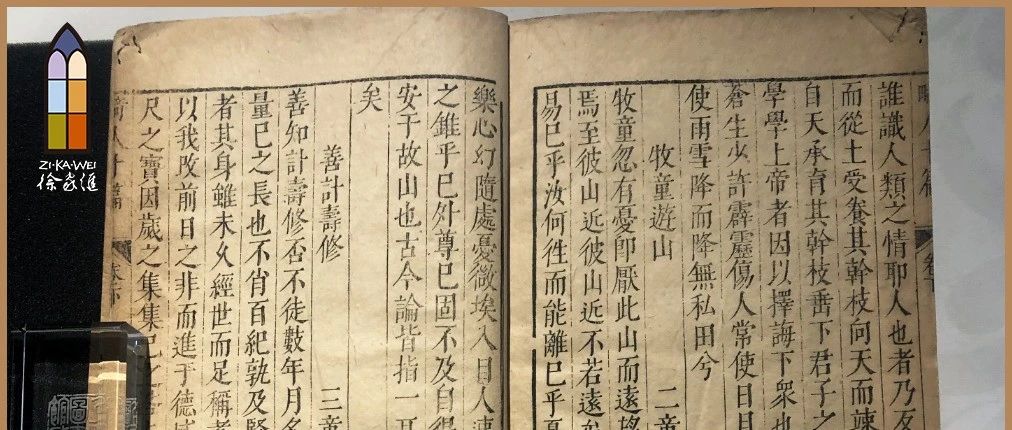 ZI·KA·WEI
徐家滙
誰識人類之情耶人也者乃反
而從土受養其幹枝向天而竦
自天承育其幹枝垂下君子之
學學上帝者因以擇誨下衆也
蒼生少許霹靂傷人常使日月
使雨雪降而降無私田兮
牧童遊山 二章
牧童忽有憂即厭此山而遠望
焉至彼山近彼山近不若遠矣
易已乎汝何徃而能離已乎
樂心幻隨處憂微埃入目人速
之錐乎已外尊已固不及自得
安于故山也古今論皆指一耳
矣
善計壽修 三章
善知計壽修否不徒數年月多
量已之長也不肖百紀孰及賢
者其身雖未久經世而足稱耆
以我改前日之非而進于德域
尺之寶因歲之集集已之
畸人十篇 卷下